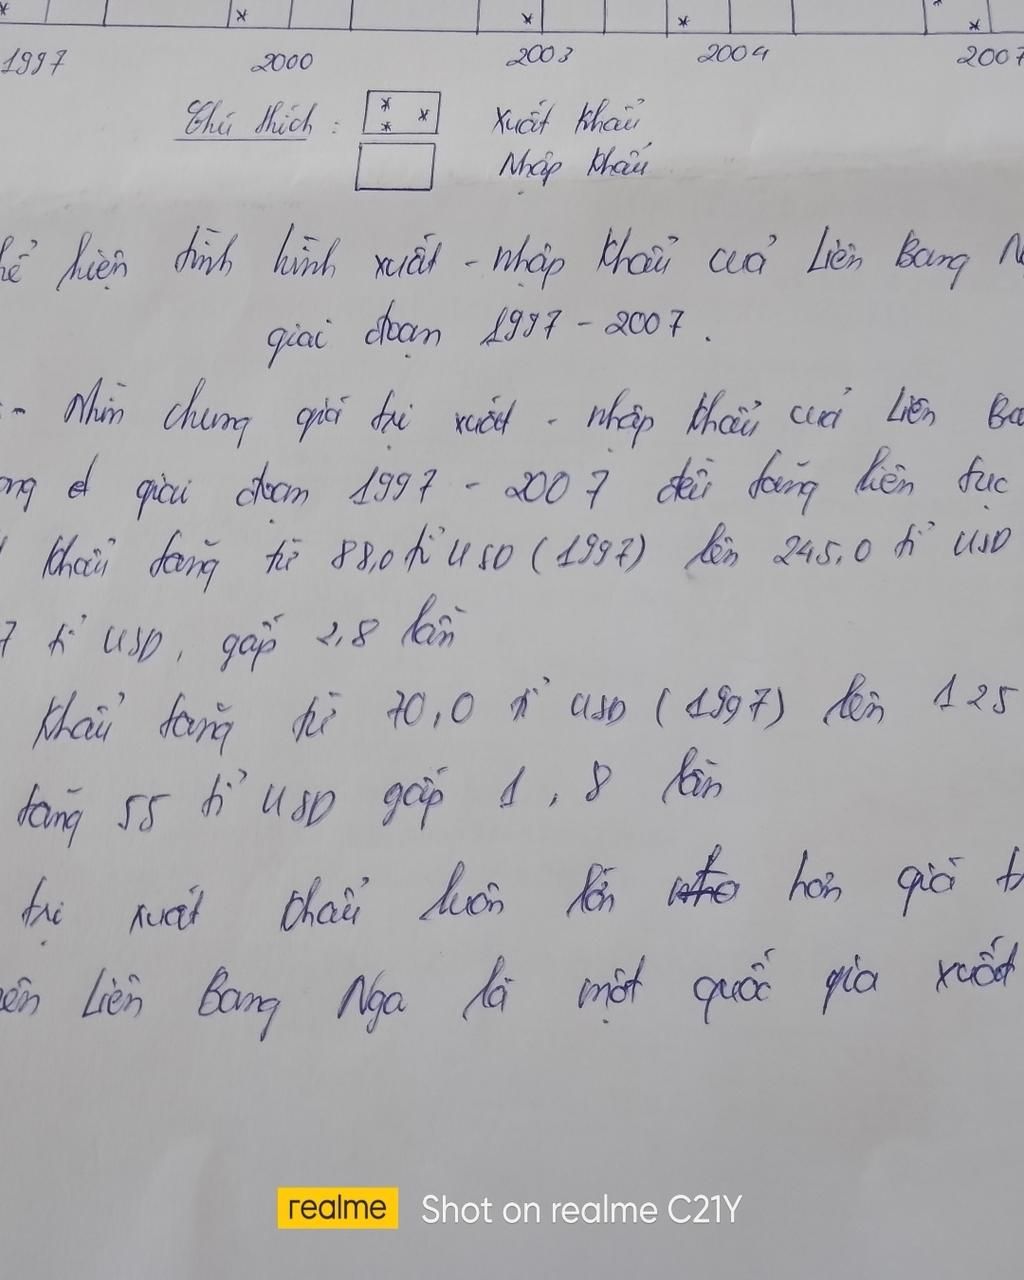 1997 2000 2003 2004 2007
Chú thích : Xuất khẩu
Nhập khẩu
hể hiện tình hình xuất - nhập khẩu của Liên Bang N
giai đoạn 1997 - 2007 .
:- Nhìn chung giá trị xuất - nhập khẩu của Liên Ba
ong giai đoạn 1997 - 2007 đều tăng liên tục
khẩu tăng từ 88,0 tỉ USD (1997) lên 245,0 tỉ USD
7 tỉ USD, gấp 2,8 lần
khẩu tăng từ 70,0 tỉ USD (1997) lên 125
tăng 55 tỉ USD gấp 1,8 lần
trị xuất khẩu luôn lớn hơn giá tr
ên Liên Bang Nga là một quốc gia xuất
realme Shot on realme C21Y